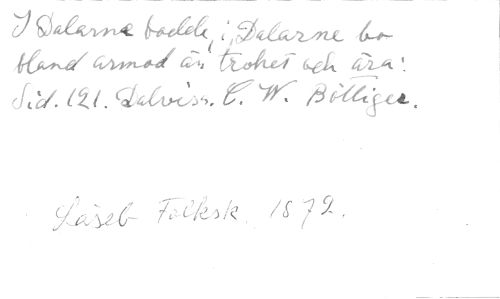 I Dalarne bodde, i Dalarne bo
bland armod än trohet och ära:
Sid. 121. Dalvisa. C. W. Böttiger.
Läseb Folksk. 1872.